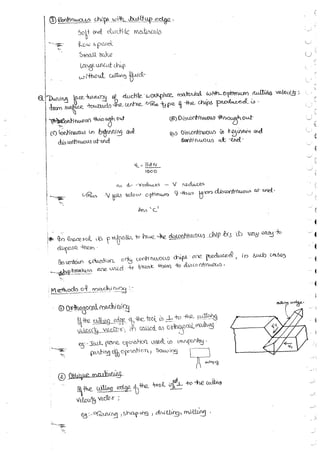 ③ Continuous chips with built up edge.
Soft and ductile materials
Low speed
Small rake
Large uncut chip
without cutting fluid.
Q. During face turning of ductile workpiece material with optimum cutting velocity:
from surface towards the centre the type of the chips produced is
(A) Continuous throughout (B) Discontinuous throughout
(C) Continuous in beginning and (D) Discontinuous in beginning and
discontinuous at end continuous at end.
1000
reduces - V reduces
When V goes below optimum then discontinuous at end.
Ans 'C'
* In general it is preferable to have the discontinuous chip bcz it is very easy to
dispose them.
In certain situation only continuous chips are produced, in such cases
chip breakers are used to break them to discontinuous.
Methods of machining :-
① Orthogonal machining
If the cutting edge of the tool is ⊥ to the cutting
velocity vector, is called as orthogonal cutting
eg:- Jack plane operation used in carpentry.
parting off operation, sawing
② Oblique machining
If the cutting edge of the tool to the cutting
velocity vector ;
eg:- Turning, shaping, drilling, milling.